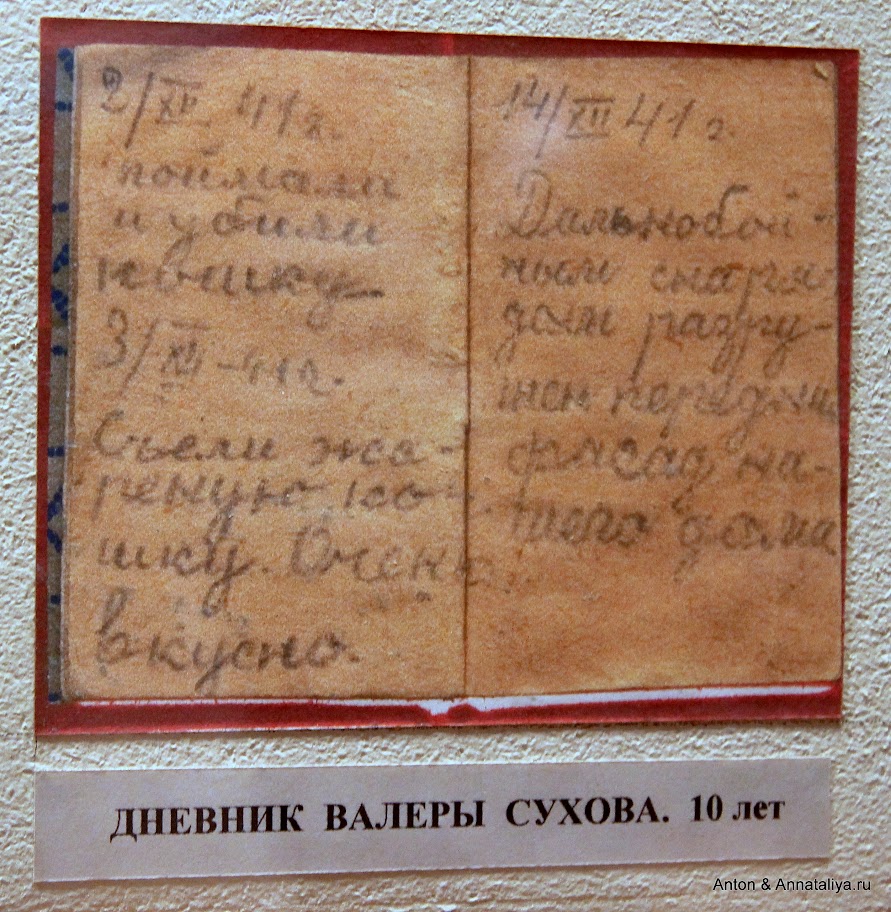 2/XII 41 г.
поймали
и убили
кошку
3/XII -41г.
Съели жа-
реную ко-
шку. Очень
вкусно.
14/XII 41 г.
Дальнобой-
ным снаря-
дом разру-
шен передний
фасад на-
шего дома
ДНЕВНИК ВАЛЕРЫ СУХОВА. 10 лет
Anton & Annataliya.ru